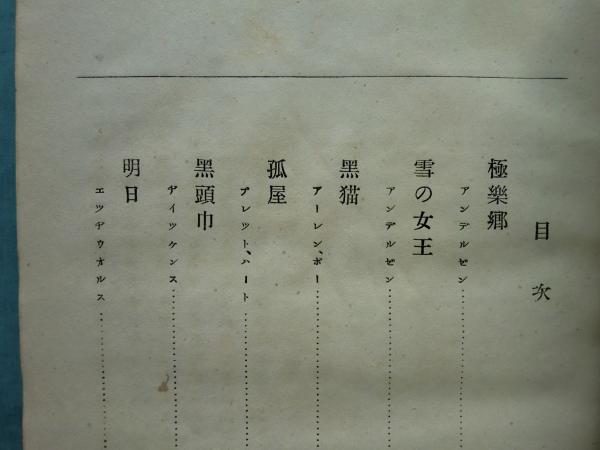 目次
極樂鄕
アンデルゼン
雪の女王
アンデルゼン
黑猫
アーレン、ポー
孤屋
ブレツト、ハート
黑頭巾
ヂイツケンス
明日
エツヂウオルス